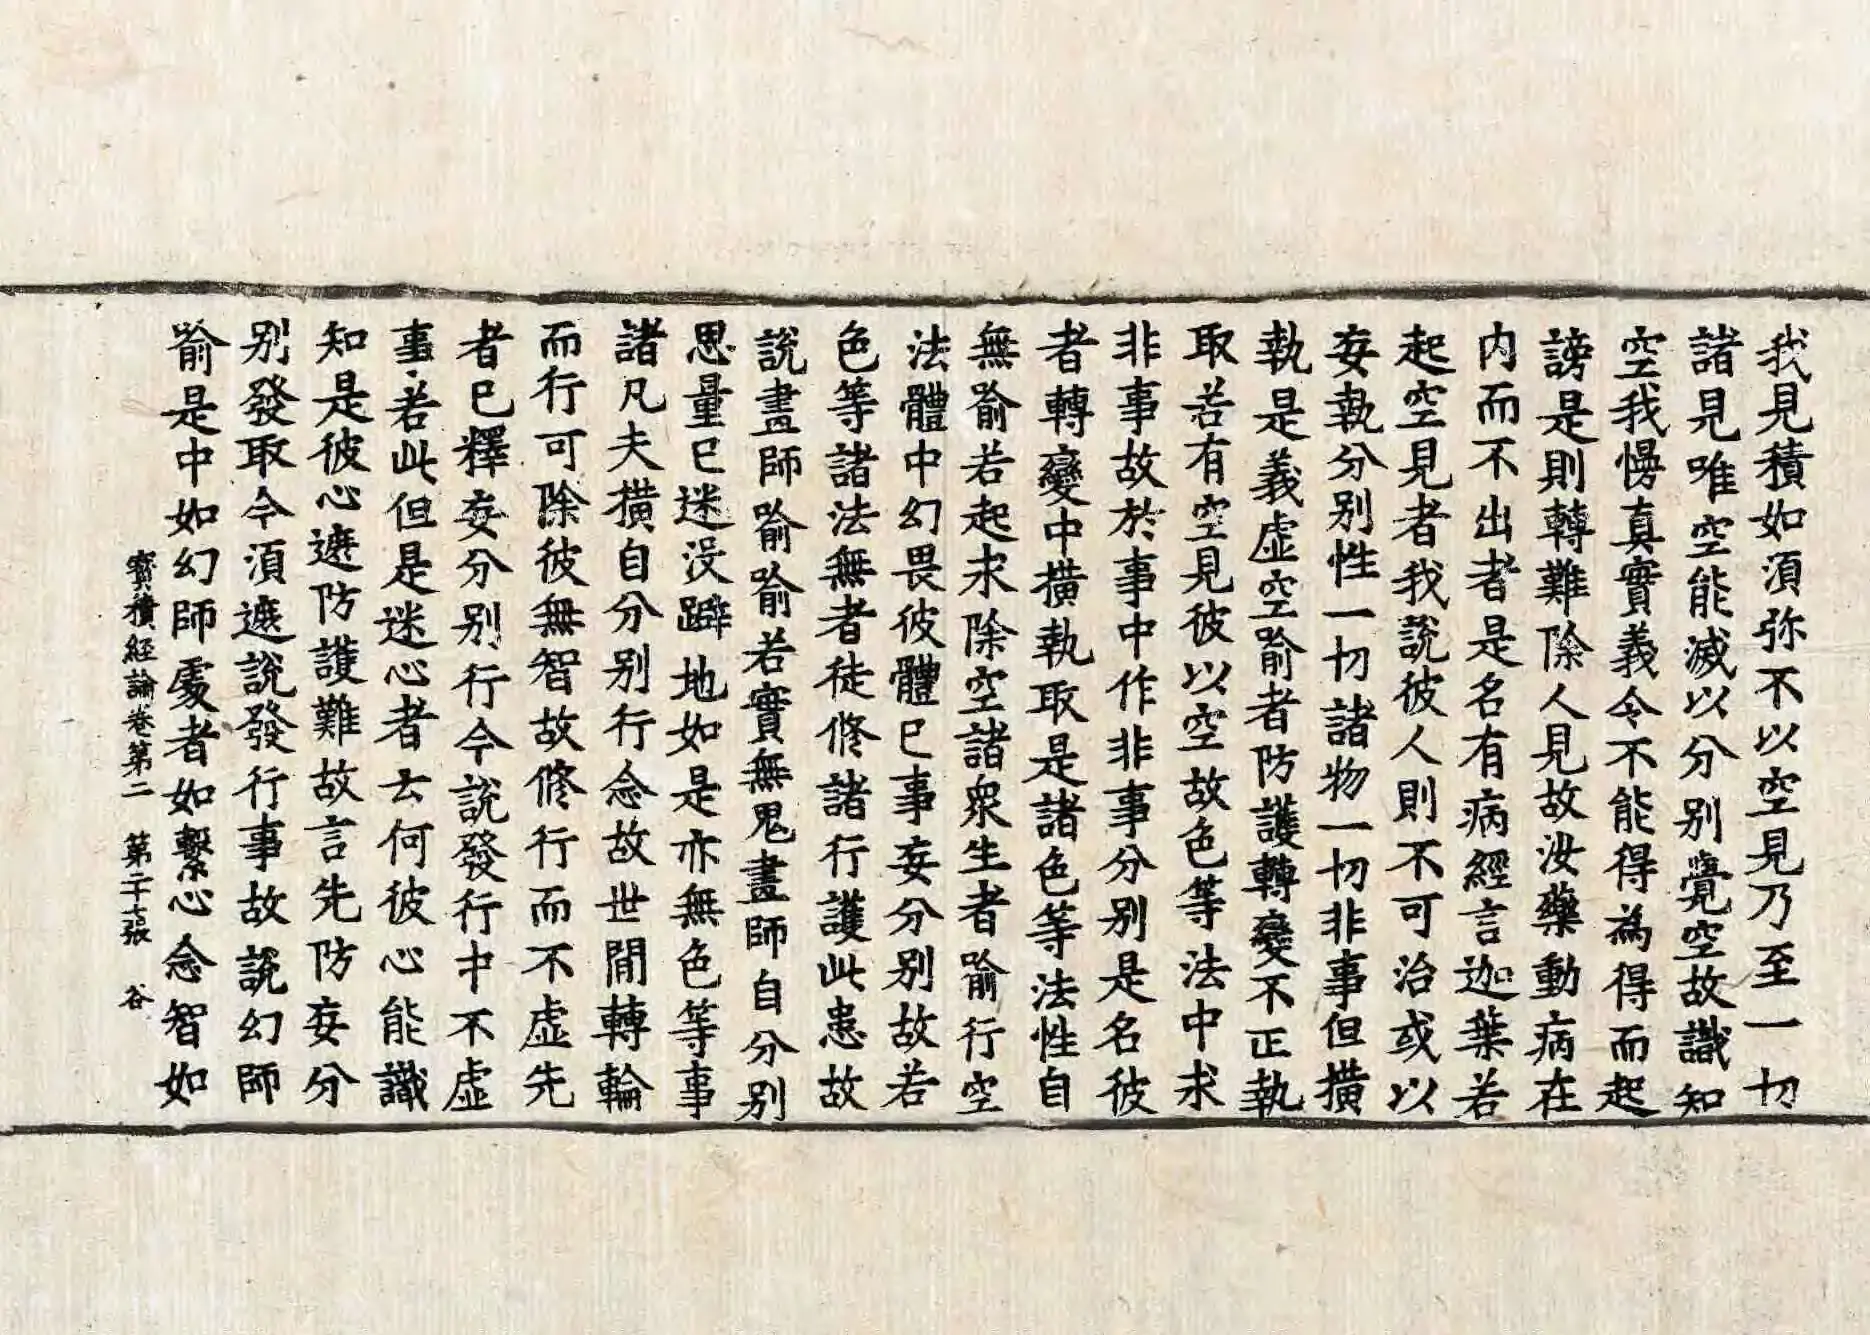 我見積如湏弥不以空見乃至一切
諸見唯空能滅以分别覺空故識知
空我慢真實義令不能得為得而起
謗是則轉難除人見故汝藥動病在
内而不出者是名有病經言迦葉若
起空見者我說彼人則不可治或以
妄執分别性一切諸物一切非事但橫
執是義虛空喻者防護轉變不正執
取若有空見彼以空故色等法中求
非事故於事中作非事分别是名彼
者轉變中橫執取是諸色等法性自
無喻若起求除空諸衆生者喻行空
法體中幻畏彼體已事妄分别故若
色等諸法無者徒修諸行護此患故
說畫師喻喻若實無鬼畫師自分别
思量已迷没躃地如是亦無色等事
諸凡夫橫自分别行念故世間轉輪
而行可除彼無智故修行而不虛先
者已釋妄分别行今說發行中不虛
事若此但是迷心者云何彼心能識
知是彼心遮防護難故言先防妄分
别發取今湏遮說發行事故說幻師
喻是中如幻師處者如繫心念智如
寶積經論卷第二 第二十張 谷